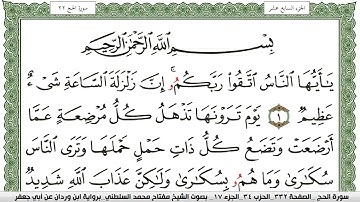 الجزء السابع عشر
سورة الحج ٢٢
بِسْمِ اللَّهِ الرَّحْمَٰنِ الرَّحِيمِ
يَـٰٓأَيُّهَا النَّاسُ اتَّقُوا رَبَّكُمُۥٓ ۚ إِنَّ زَلْزَلَةَ السَّاعَةِ شَىْءٌ
عَظِيمٌ ١ يَوْمَ تَرَوْنَهَا تَذْهَلُ كُلُّ مُرْضِعَةٍ عَمَّا
أَرْضَعَتْ وَتَضَعُ كُلُّ ذَاتِ حَمْلٍ حَمْلَهَا وَتَرَى النَّاسَ
سُكَـٰرَىٰ وَمَا هُمُۥ بِسُكَـٰرَىٰ وَلَـٰكِنَّ عَذَابَ اللَّهِ شَدِيدٌ
سورة الحج الصفحة ٣٣٢ الحزب ٣٤ الجزء ١٧ بصوت الشيخ مفتاح محمد السلطني برواية ابن وردان عن أبي جعفر